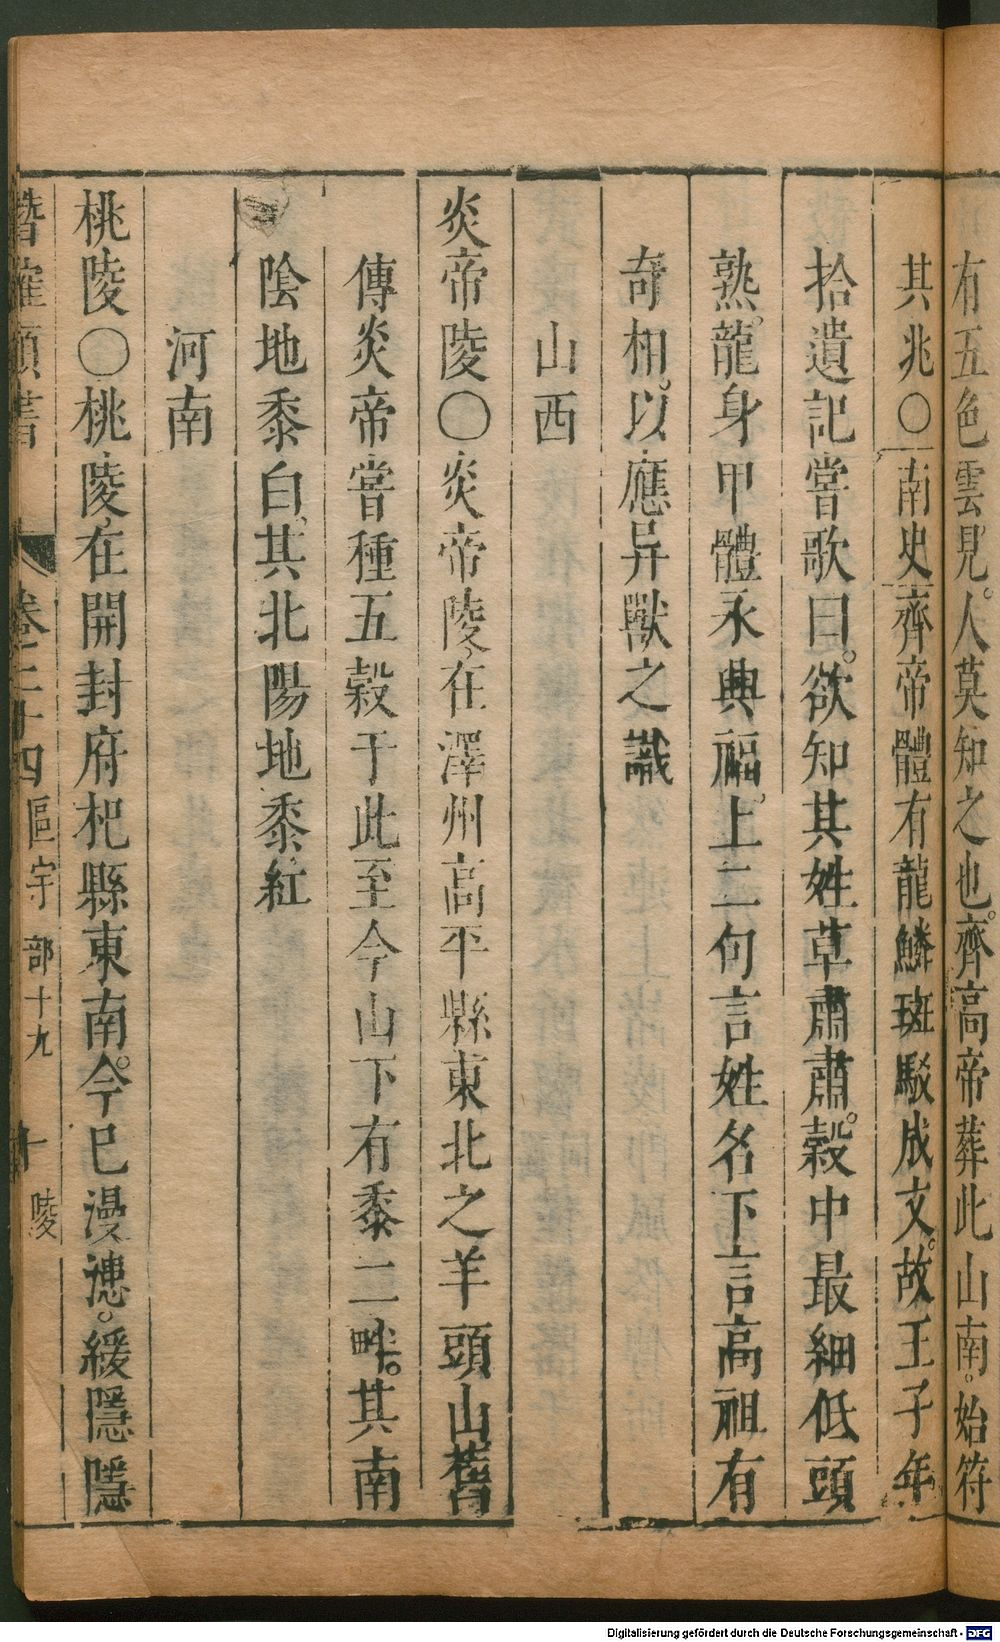 有五色雲見。人莫知之也。齊高帝葬此山南。始符
其兆〇南史齊帝體有龍鱗斑駁成文。故王子年
拾遺記嘗歌曰。欲知其姓草肅肅。穀中最細低頭
熟。龍身甲體永興福。上二句言姓名下言高祖有
奇相。以應异獸之識
山西
炎帝陵〇炎帝陵在澤州高平縣東北之羊頭山舊
傳炎帝嘗種五穀于此至今山下有黍二畔。其南
陰地黍白其北陽地黍紅
河南
桃陵〇桃陵在開封府杞縣東南。今巳漫漶。緩隱隱
潛確類書 卷二十四 區宇部十九 十 陵
Digitalisierung gefördert durch die Deutsche Forschungsgemeinschaft - DFG